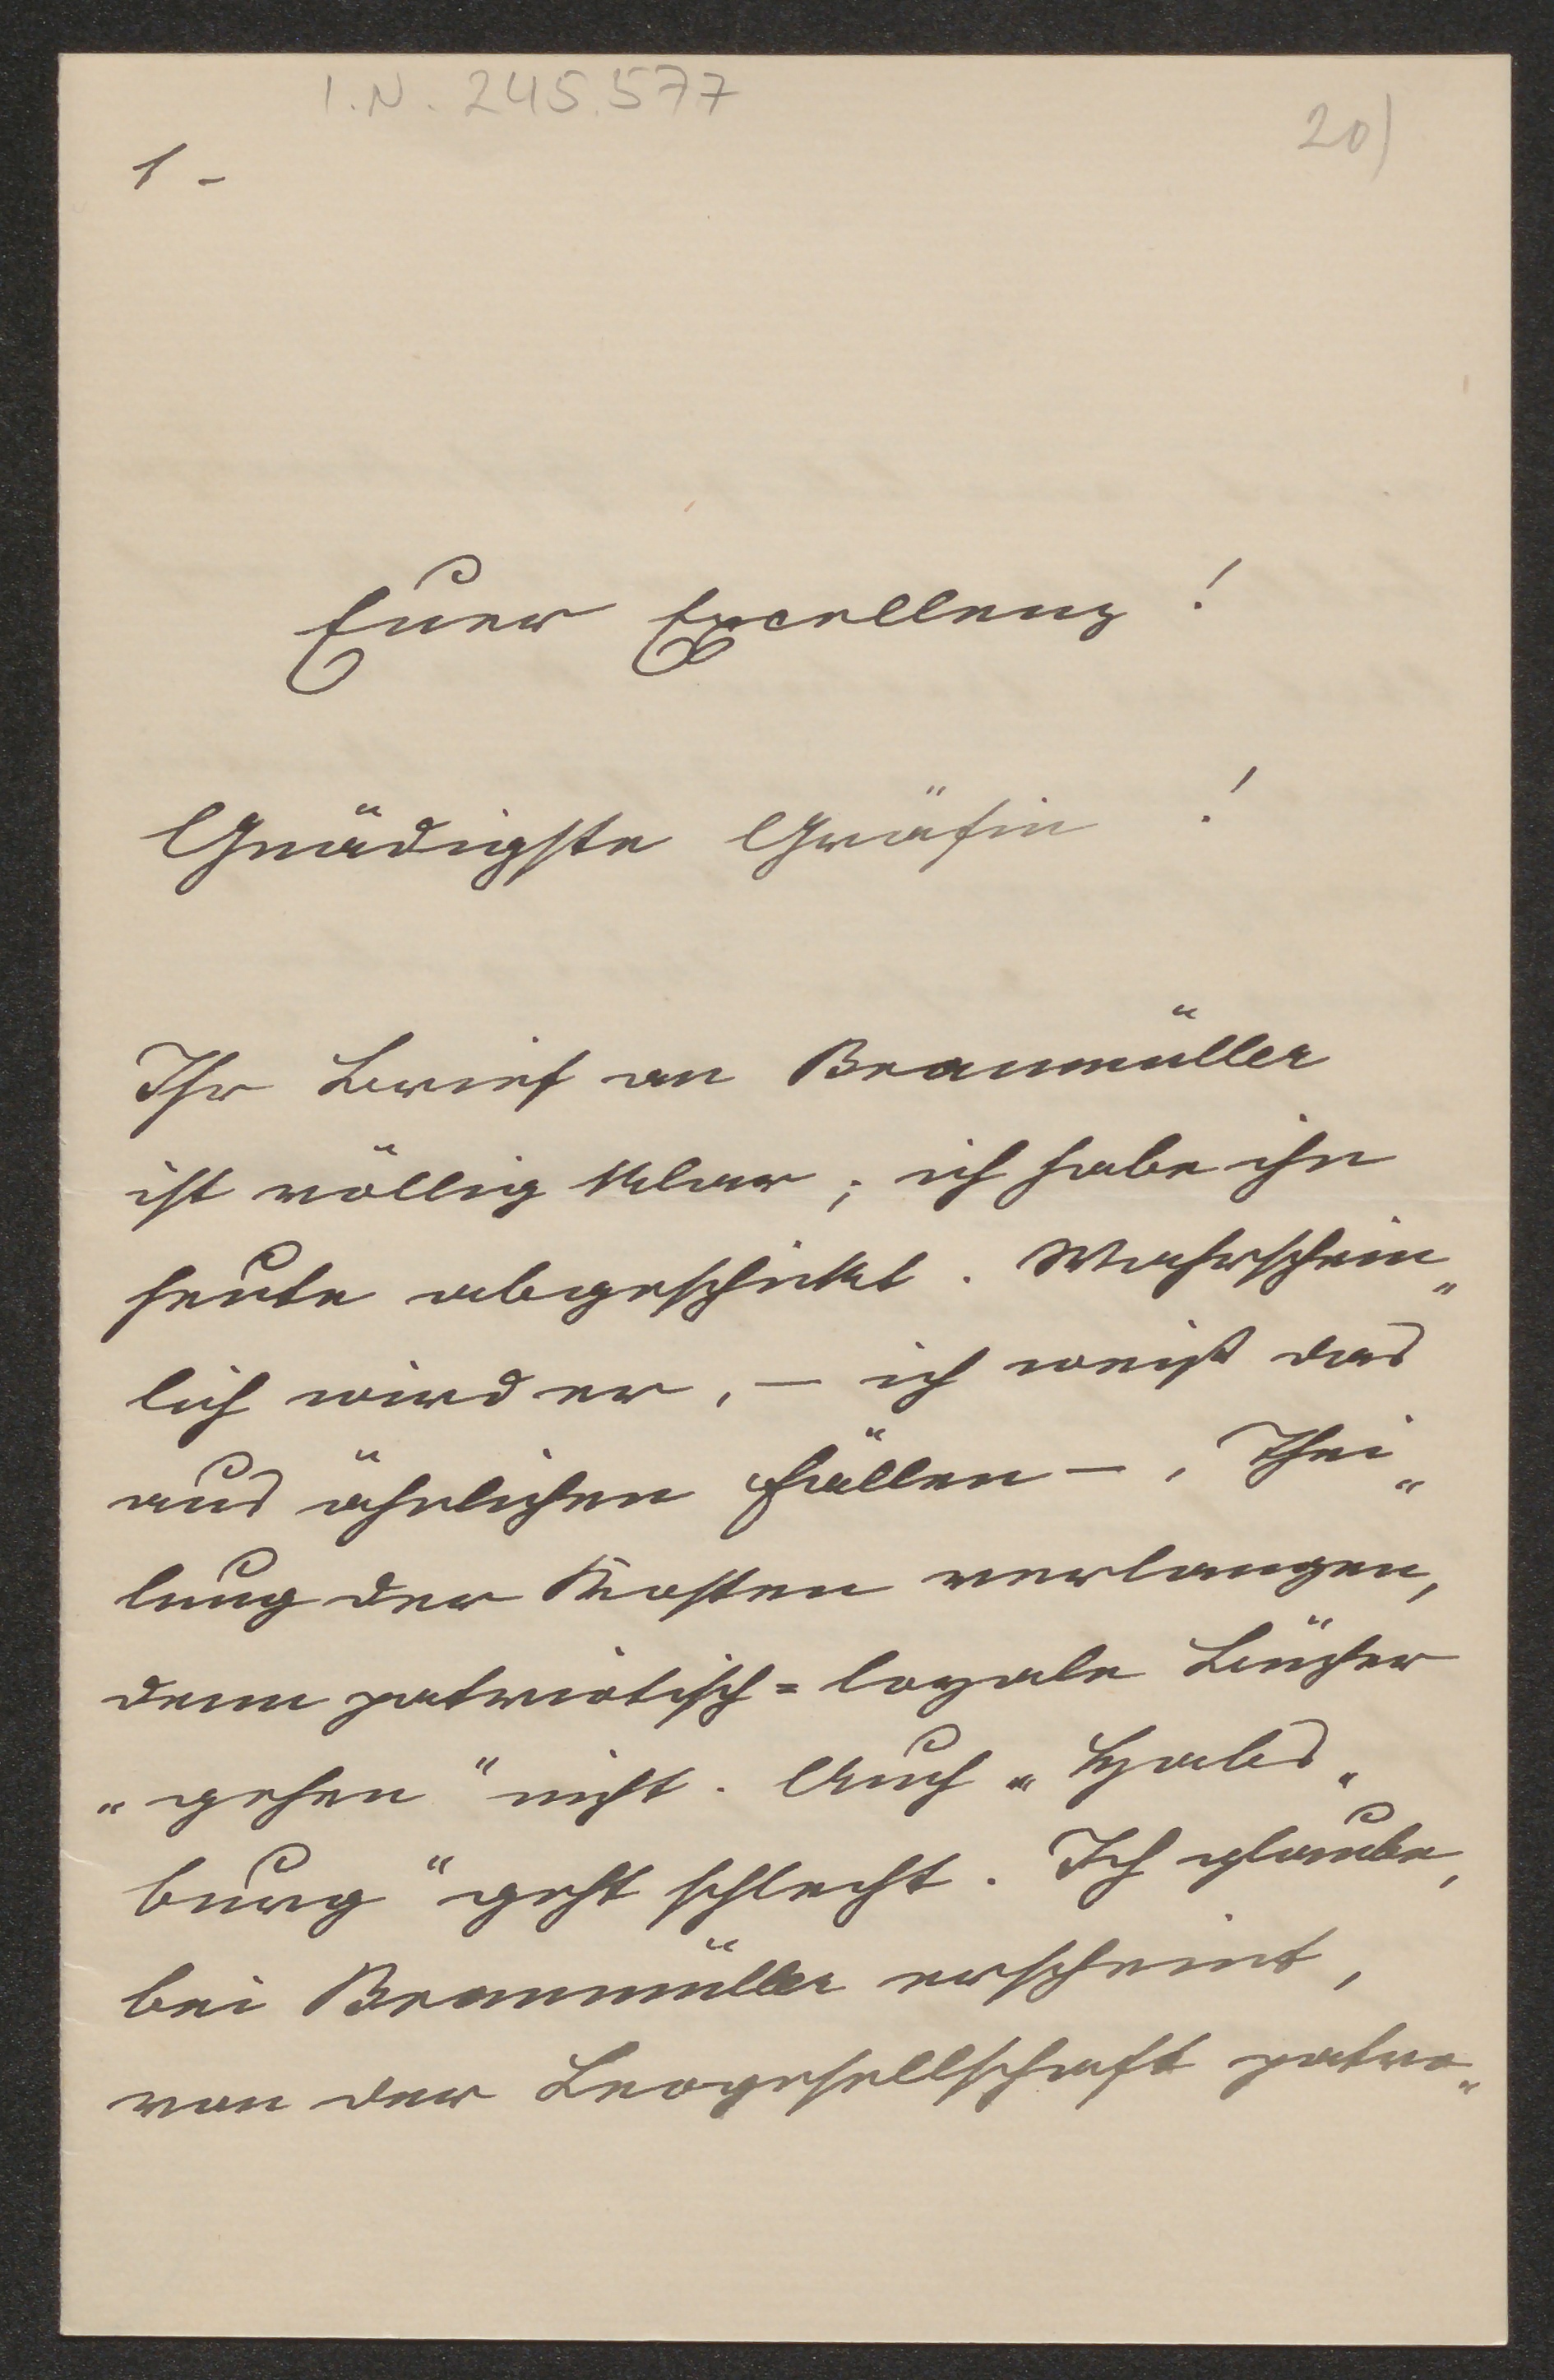 I.N. 245.577
20)
1 -
Euer Excellenz !
Gnädigste Gräfin !
Ihr Brief an Braumüller
ist völlig klar; ich habe ihn
heute abgeschickt. Wahrschein„
lich wird er, — ich weiß das
aus ähnlichen Fällen —, Thei„
lung der Kosten verlangen,
denn patriotisch=loyale Bücher
„gehen“ nicht. Auch „Habs„
burg“ geht schlecht. Ich glaube,
bei Braumüller erscheint,
von der Leogesellschaft patro„